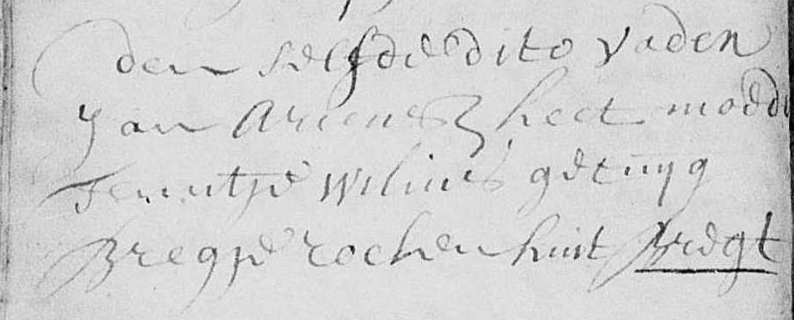 den selfde dito vader
Jan Ariensz heet moede
Jenntje Wilims getuijg
Bregje rochen kint Bregt